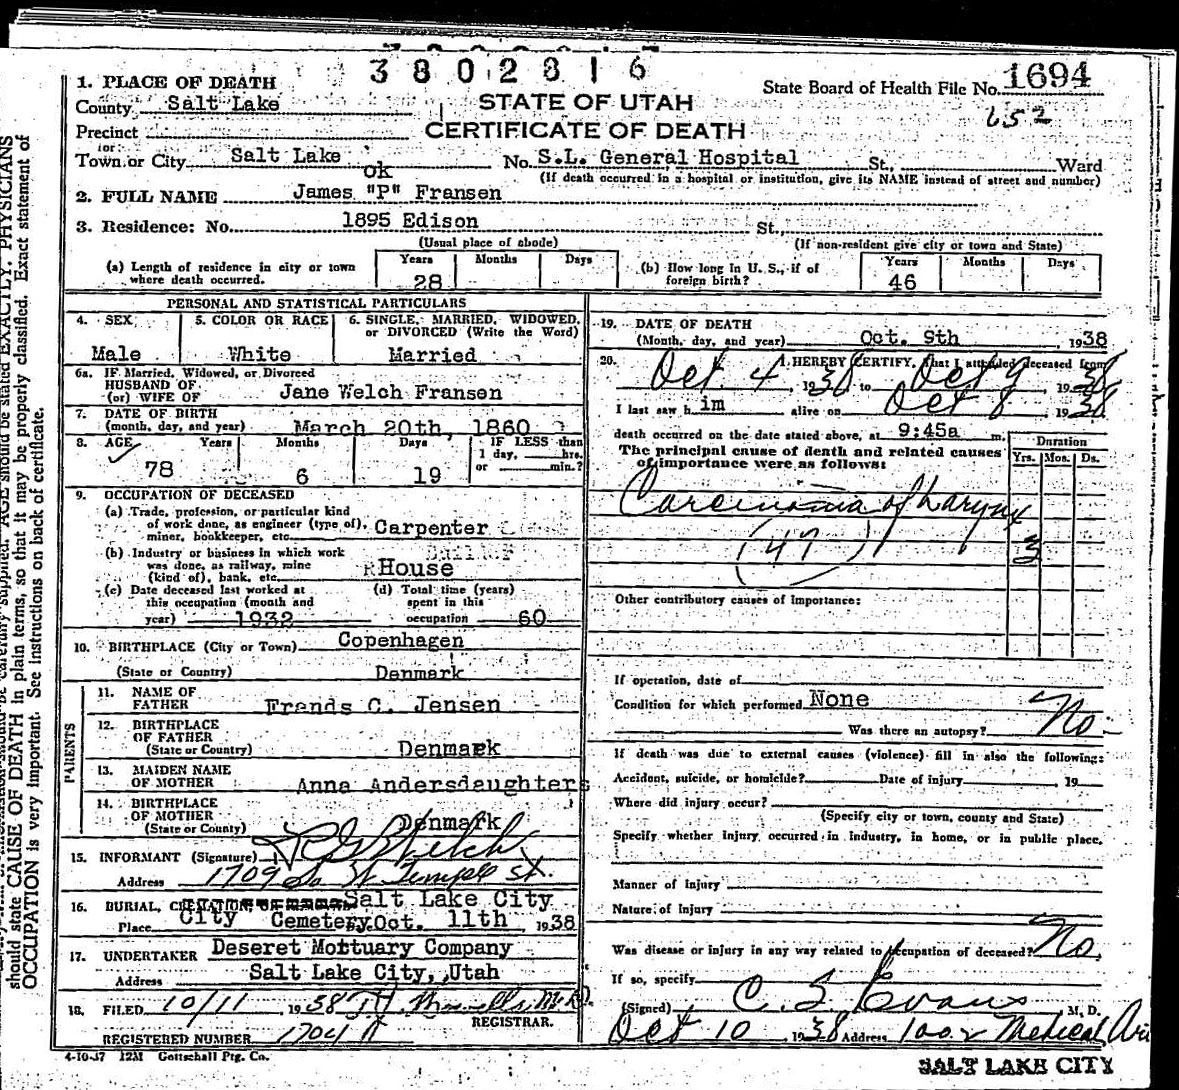 3802816
1. PLACE OF DEATH
State Board of Health File No. 1694
County Salt Lake
STATE OF UTAH
652
Precinct
CERTIFICATE OF DEATH
or
Town or City Salt Lake No. S.L. General Hospital St, Ward
ok
(If death occurred in a hospital or institution, give its NAME instead of street and number)
2. FULL NAME James "P" Fransen
3. Residence: No. 1895 Edison St.
(Usual place of abode) (If non-resident give city or town and State)
(a) Length of residence in city or town where death occurred. Years 28 Months Days
(b) How long in U. S., if of foreign birth? Years 46 Months Days
PERSONAL AND STATISTICAL PARTICULARS
4. SEX 5. COLOR OR RACE 6. SINGLE, MARRIED, WIDOWED, or DIVORCED (Write the Word)
Male White Married
6a. IF Married, Widowed, or Divorced
HUSBAND OF
(or) WIFE OF Jane Welch Fransen
7. DATE OF BIRTH
(month, day, and year) March 20th, 1860
8. AGE Years Months Days IF LESS than
1 day, hrs.
or min.?
78 6 19
9. OCCUPATION OF DECEASED
(a) Trade, profession, or particular kind
of work done, as engineer (type of),
miner, bookkeeper, etc. Carpenter
(b) Industry or business in which work
was done, as railway, mine
(kind of), bank, etc. House
(c) Date deceased last worked at
this occupation (month and
year) 1932
(d) Total time (years)
spent in this
occupation 60
10. BIRTHPLACE (City or Town) Copenhagen
(State or Country) Denmark
PARENTS
11. NAME OF
FATHER Frands C. Jensen
12. BIRTHPLACE
OF FATHER
(State or Country) Denmark
13. MAIDEN NAME
OF MOTHER Anna Andersdaughters
14. BIRTHPLACE
OF MOTHER
(State or County) Denmark
15. INFORMANT (Signature) Welch
Address 1709 So. W. Temple St.
16. BURIAL, CREMATION, Salt Lake City
Place City Cemetery. Oct. 11th, 1938
17. UNDERTAKER Deseret Mottuary Company
Address Salt Lake City, Utah
18. FILED 10/11 1938
REGISTRAR.
REGISTERED NUMBER 1704
4-10-37 12M Gottschall Ptg. Co.
19. DATE OF DEATH
(Month, day, and year) Oct. 9th, 1938
20. I HEREBY CERTIFY, That I attended deceased from
Oct. 4, 1938 to Oct 9 1938
I last saw h im alive on Oct 8, 1938
death occurred on the date stated above, at 9:45a m.
The principal cause of death and related causes
of importance were as follows:
Duration
Yrs. Mos. Ds.
Carcinoma of Larynx
(47) 3
Other contributory causes of importance:
If operation, date of
Condition for which performed None
Was there an autopsy? No
If death was due to external causes (violence) fill in also the following:
Accident, suicide, or homicide? Date of injury, 19
Where did injury occur?
(Specify city or town, county and State)
Specify whether injury occurred in industry, in home, or in public place.
Manner of Injury
Nature of Injury
Was disease or injury in any way related to occupation of deceased? No.
If so, specify
(Signed) C. S. Evans M. D.
Oct 10, 1938 Address 1002 Medical
SALT LAKE CITY
should state CAUSE OF DEATH in plain terms, so that it may be properly classified. Exact statement of
OCCUPATION is very important. See instructions on back of certificate.